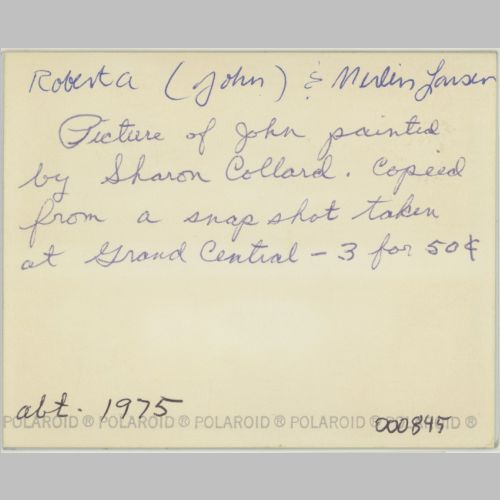 Roberta (John) & Merlin Larsen
Picture of John painted
by Sharon Collard. Copied
from a snap shot taken
at Grand Central - 3 for 50¢
abt. 1975
POLAROID ® POLAROID ® POLAROID ® POLAROID ® POLAROID ®
000845